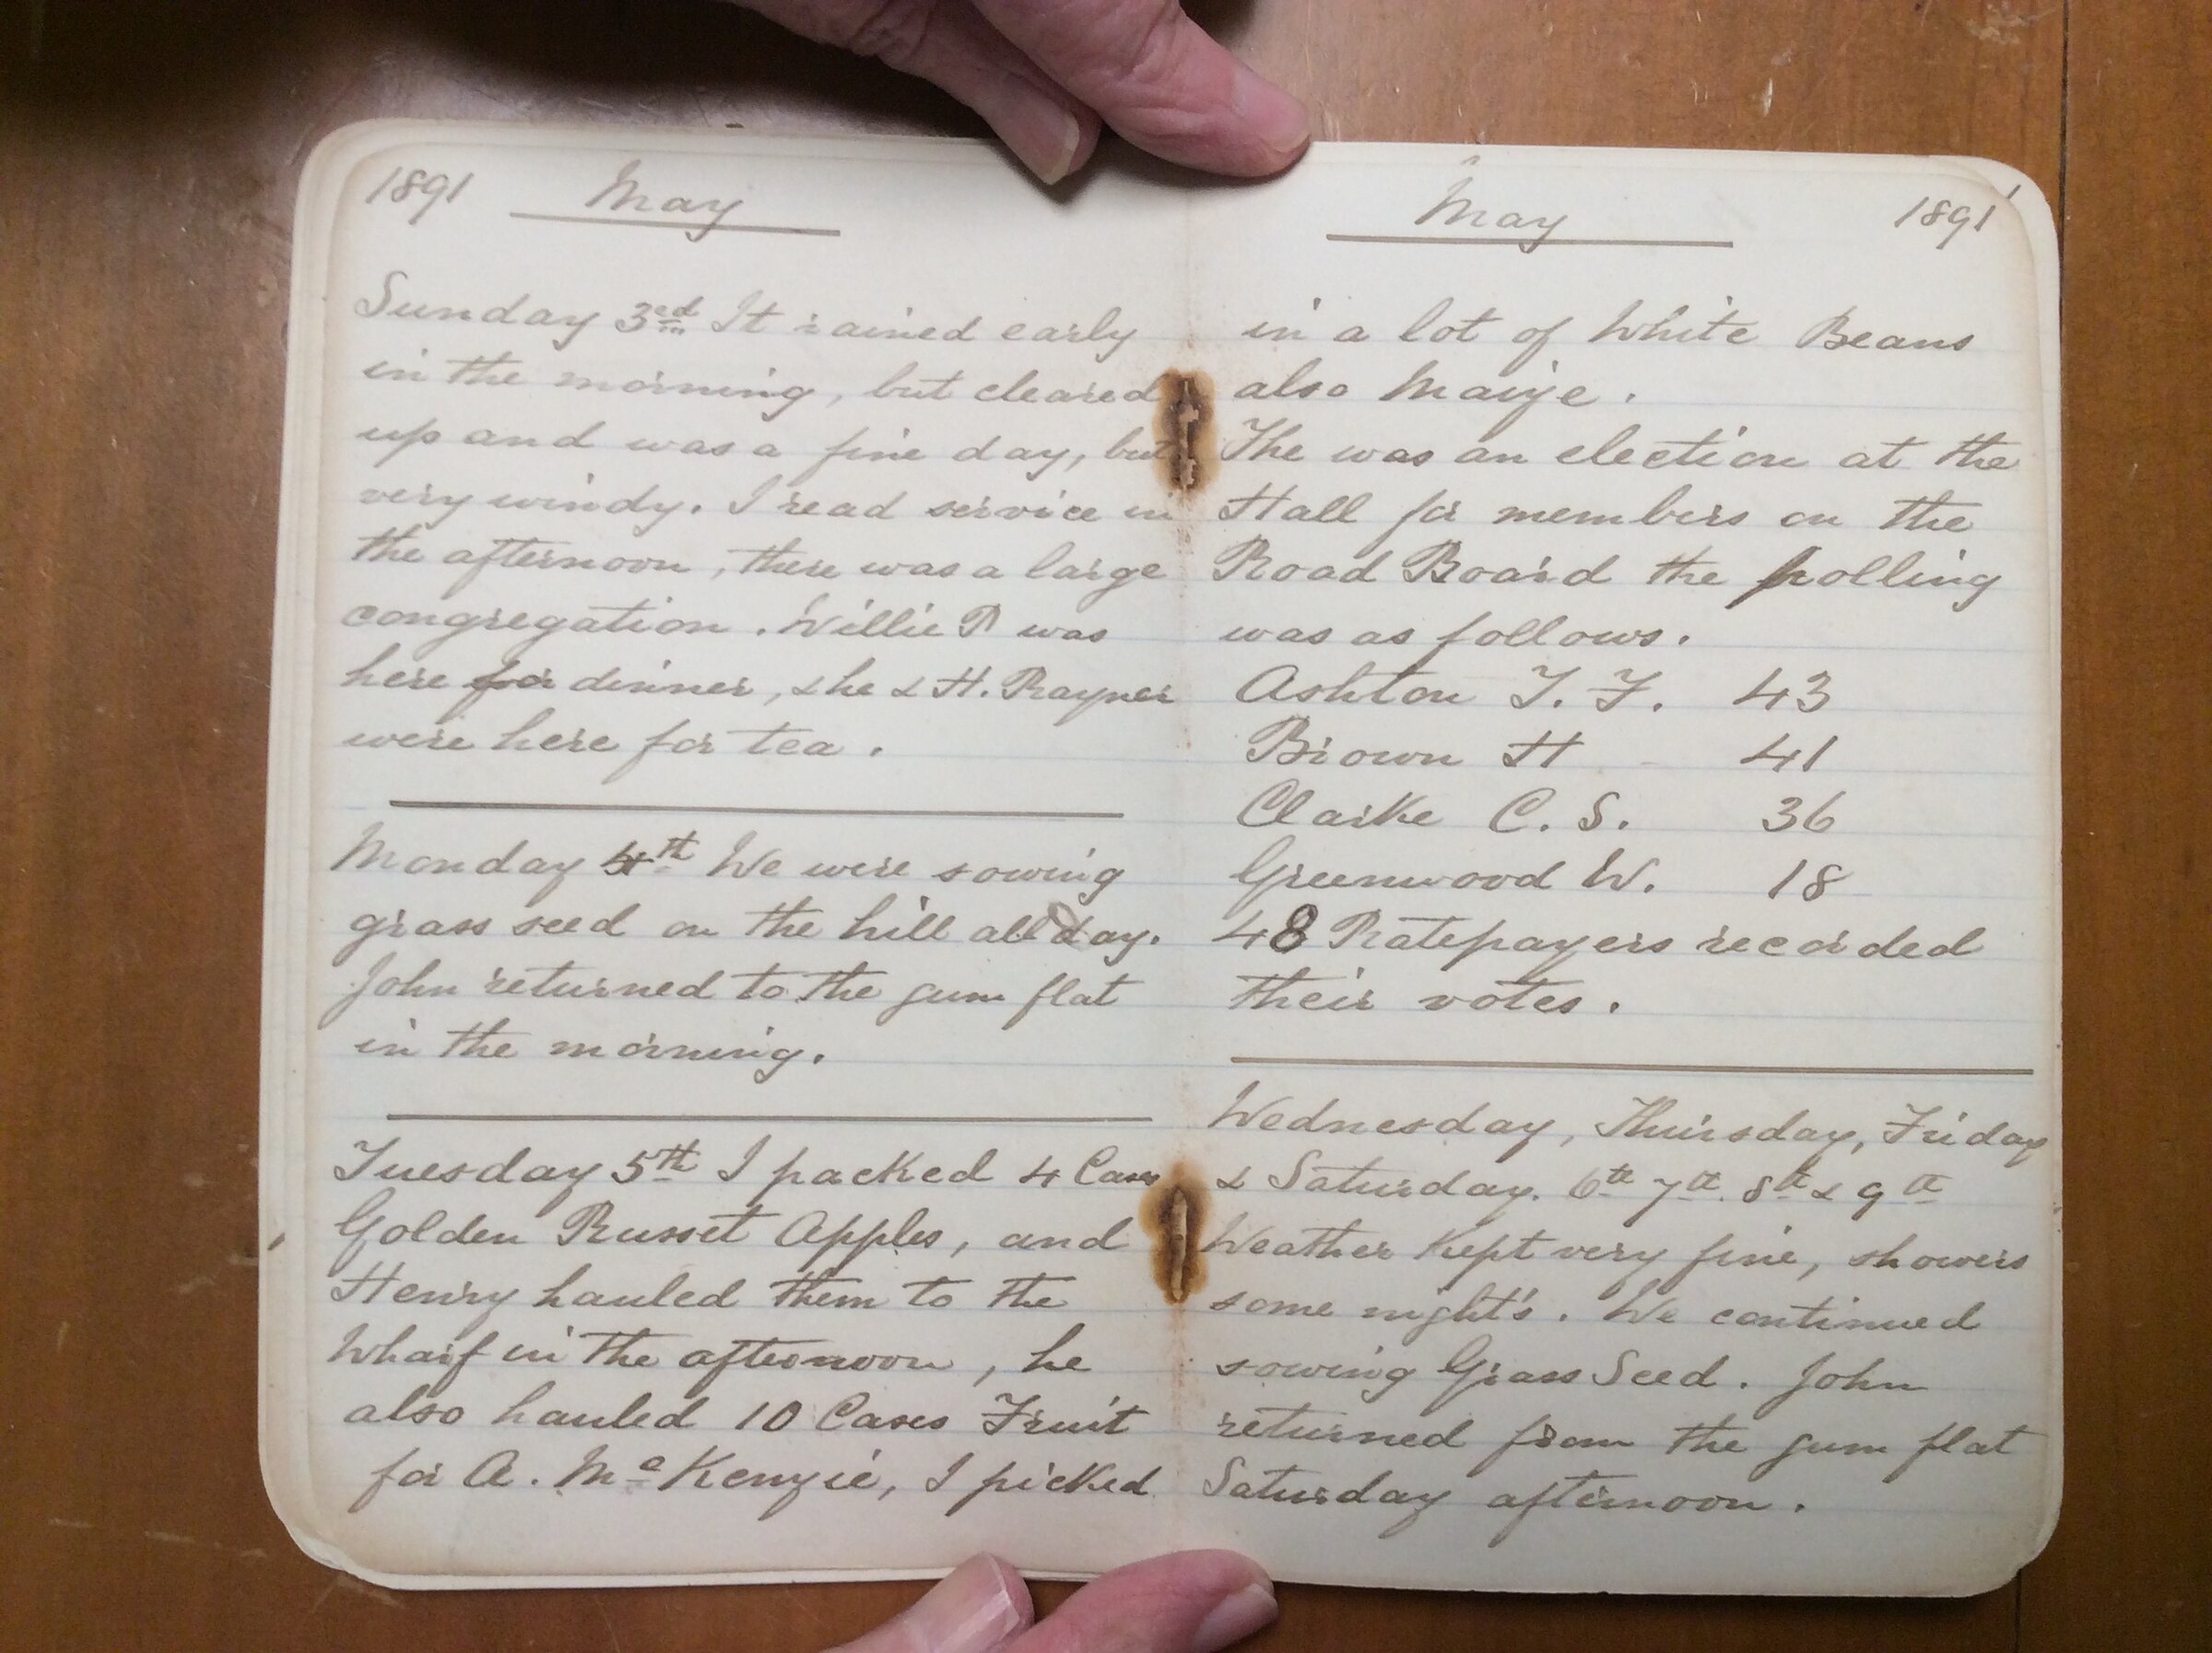 1891 May
Sunday 3rd It rained early
in the morning, but cleared
up and was a fine day, but
very windy. I read service in
the afternoon, there was a large
congregation. Willie R was
here for dinner, & he & H. Rayner
were here for tea.
Monday 4th We were sowing
grass seed on the hill all day.
John returned to the gum flat
in the morning.
Tuesday 5th I packed 4 Cases
Golden Russet Apples, and
Henry hauled them to the
Wharf in the afternoon, he
also hauled 10 Cases Fruit
for A. McKenzie, I picked
May 1891
in a lot of White Beans
also Maize.
The was an election at the
Hall for members on the
Road Board the polling
was as follows.
Ashton T. F. 43
Brown H 41
Clarke C. S. 36
Greenwood W. 18
48 Ratepayers recorded
their votes.
Wednesday, Thursday, Friday
& Saturday. 6th 7th 8th & 9th
Weather Kept very fine, showers
some night's. We continued
sowing Grass Seed. John
returned from the gum flat
Saturday afternoon.